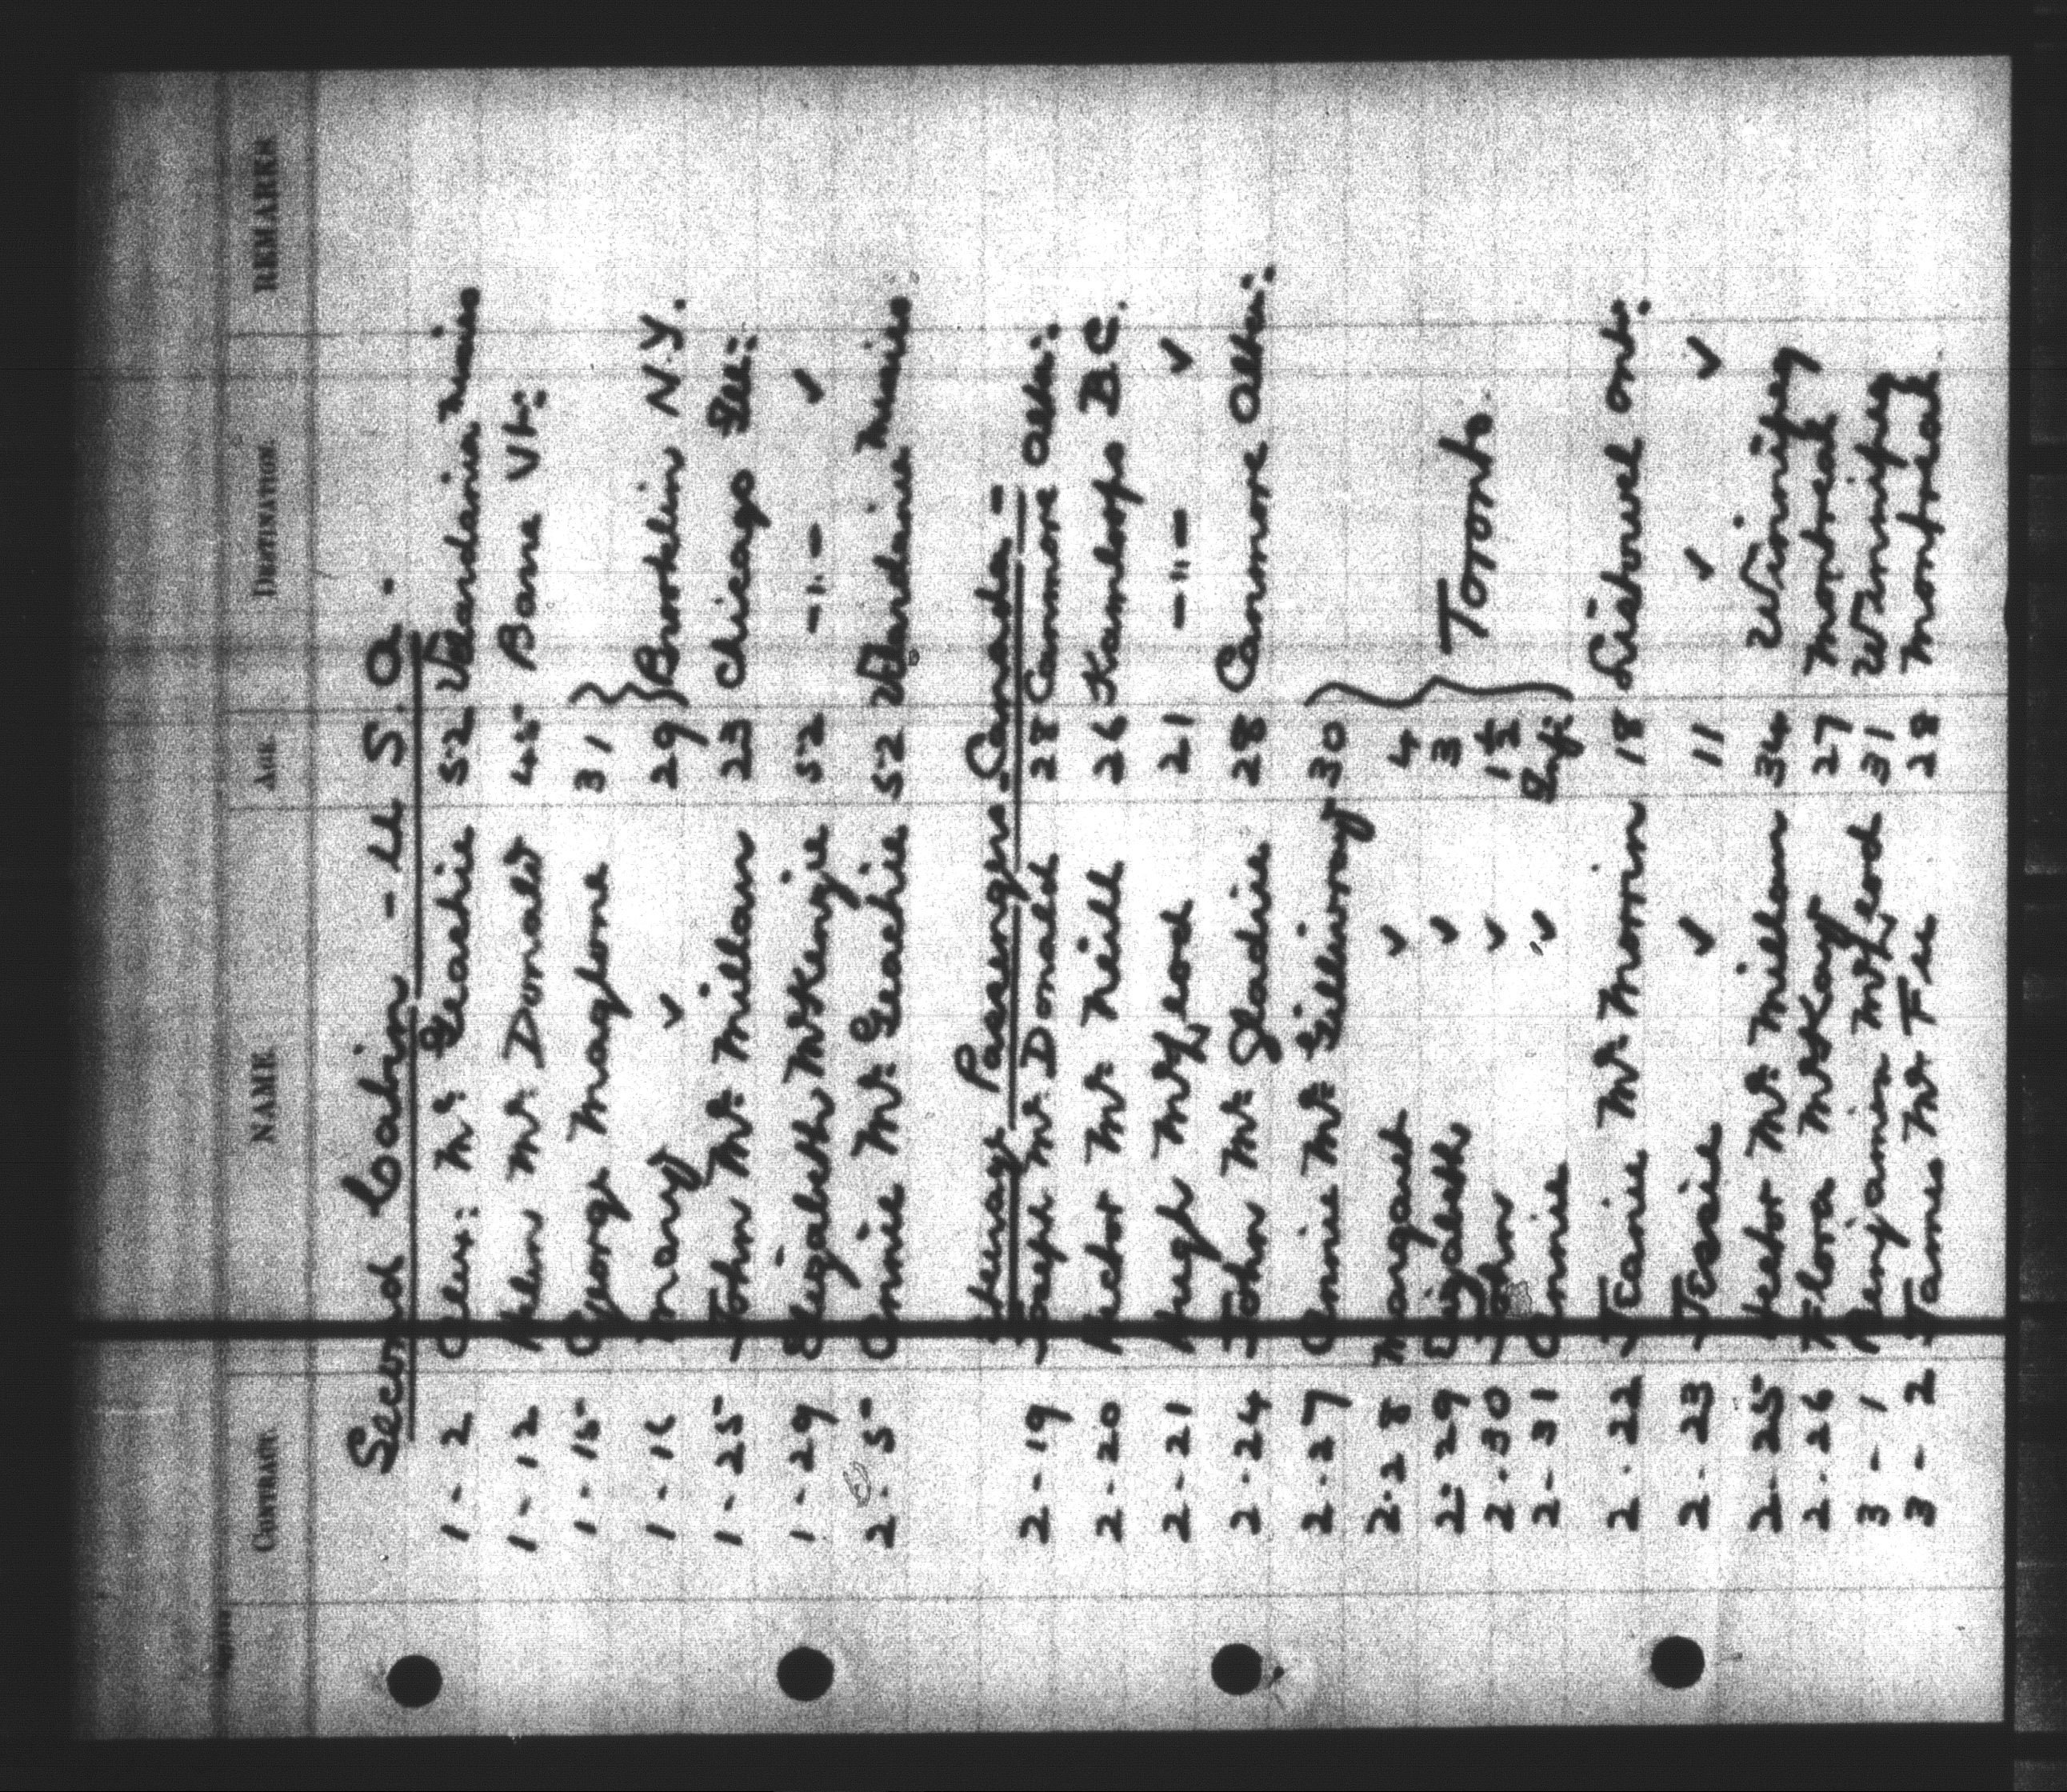 CONTRACT. NAME. AGE. DESTINATION. REMARKS
Second Cabin - U S. A.
1 - 2 Alex: Mc Geachie 52 Minn
1 - 12 Helen Mc Donald 45 Barre Vt:
1 - 15 George Maglone 31
1 - 16 Mary ✓ 29 } Brooklin N.Y.
1 - 25 John Mc Millan 23 Chicago Ill:
1 - 29 Elizabeth McKenzie 52 -"- ✓
2 - 5 Annie Mc Geachie 52
Steerage Passengers - Canada -
2 - 19 Mc Donald 28 Canmore Alta:
2 - 20 Hector Mc Neill 26 Kamloops B C.
2 - 21 Hugh McLeod 21 -"- ✓
2 - 24 John Mc Gladrie 28 Canmore Alta:
2 - 27 Annie Mc Gillivray 30
2 - 28 Margaret ✓ 4
2 - 29 Elizabeth ✓ 3 } Toronto.
2 - 30 John ✓ 1½
2 - 31 Annie ✓ Inf:
2 - 22 Jeanie Mc Morrin 18 Listowel Ont:
2 - 23 Jessie ✓ 11 ✓ ✓
2 - 25 Hector Mc Millan 34 Winnipeg
2 - 26 Flora McKay 27 Montreal
3 - 1 Benjamin McLeod 31 Winnipeg
3 - 2 James Mc Fee 28 Montreal